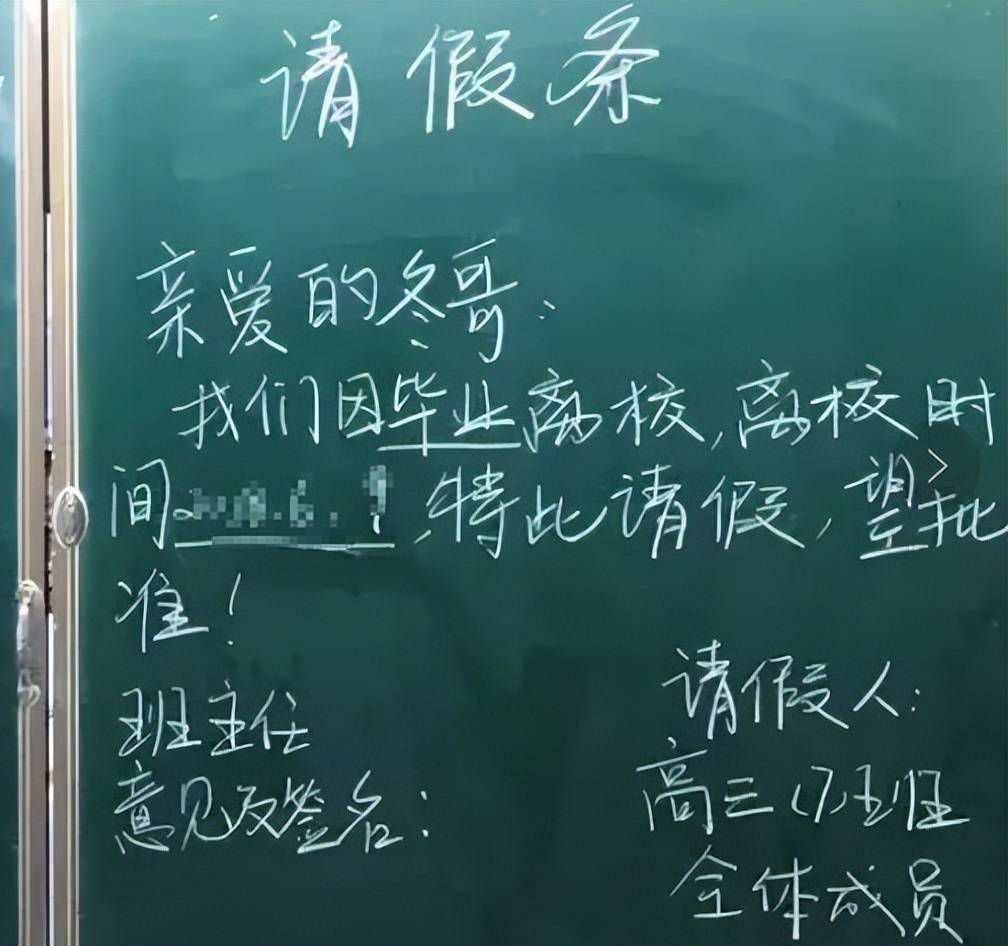 请假条
亲爱的冬哥：
我们因毕业离校，离校时
间 ，特此请假，望批
准！
班主任
意见及签名：
请假人：
高三（7）班
全体成员